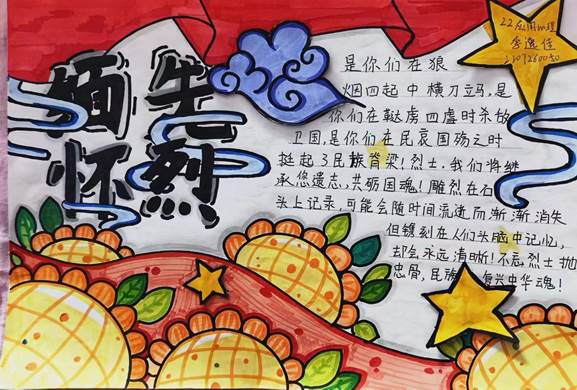 缅怀
先烈
22应用心理
是你们在狼
烟四起中横刀立马,是
你们在鞑虏四虐时杀敌
卫国,是你们在民哀国殇之时
挺起了民族脊梁!烈士,我们将继
承悠遗志,共砺国魂!雕烈在石
头上记录,可能会随时间流逝而渐渐消失
但镌刻在人们头脑中记忆,
却会永远清晰!不忘烈士抛
忠骨,民族复兴中华魂!